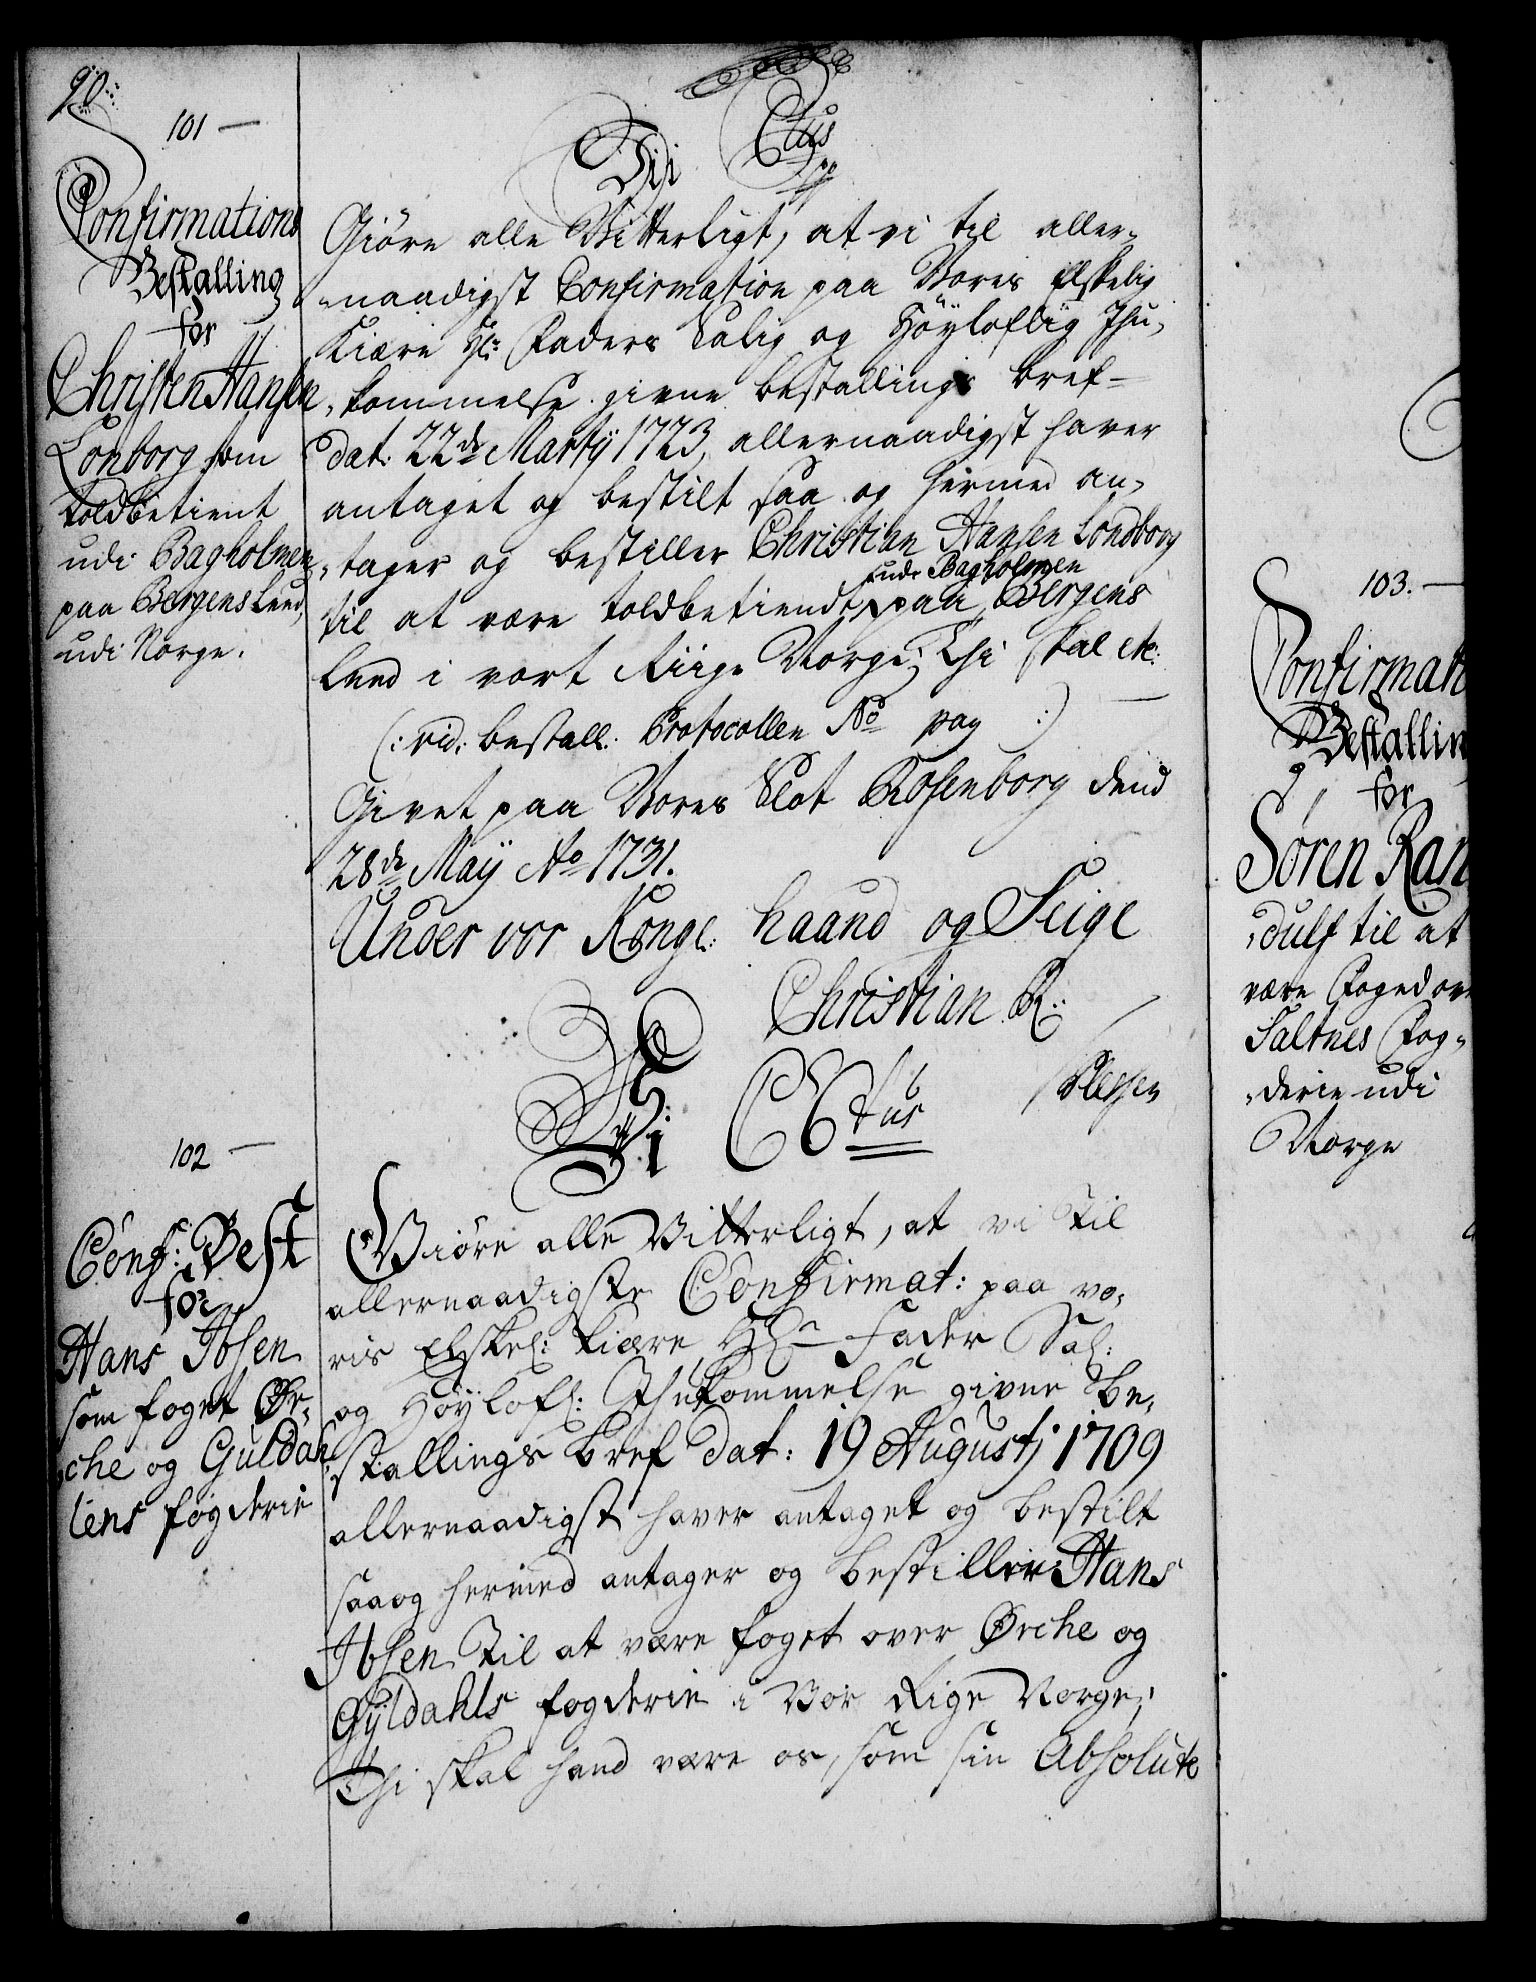 90.
101 —
Confirmations
Bestalling
for
Christen Hansen
Lonborg som
toldbetient
udi Bagholmen
paa Bergens Leen,
udi Norge.
Vi C 6tus
Giöre alle Vitterligt, at vi til aller-
-naadigst Confirmation paa Vores Elskelig
Kiære Hr: Faders Salig og Höyloflig Ihu-
-kommelse givne bestallings bref
dat: 22de Martÿ 1723, allernaadigst haver
antaget og bestilt saa og hermed an-
-tager og bestiller Christian Hansen Londborg
udi Bagholmen
til at være toldbetiendt paa Bergens
Leen i vort Riige Norge; Thi skal etc:
(: vid: bestall: Protocollen No pag :)
Givet paa Vores Slot Rosenborg dend
28de Maÿ Ao 1731.
Under vor Kongl: haand og Seigl
Christian R:
Plessen
102 —
Conf: Best
for
Hans Ibsen
som foget Ør-
-che og Guldah-
lens fogderie
Vi C 6tus
Giöre alle Vitterligt, at vi til
allernaadigste Confirmat: paa vo-
ris Elskel: kiære Hrn Fader Sal:
og Höylofl: Ihukommelse givne be-
-stallings bref dat: 19 Augusti 1709
allernaadigst haver antaget og bestilt
saa og hermed antager og bestiller Hans
Ibsen til at være foget over Ørche og
Gyldahls fogderie i Vor Rige Norge;
Thi skal hand være os, som sin Absolute
103. —
Confirmati
Bestallin
for
Søren Ran
-dulf til at
være Foged ov
Saltnes Fog-
-derie udi
Norge